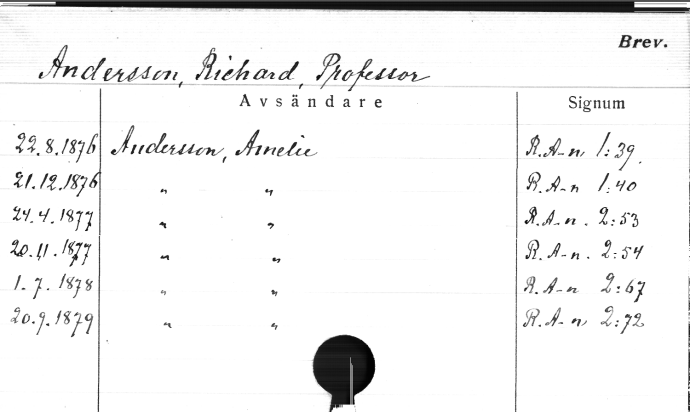 Brev.
Andersson, Richard, Professor
Avsändare Signum
22.8.1876 Andersson, Amelie R.A-n 1:39.
21.12.1876 " " R.A-n 1:40
24.4.1877 " " R.A-n. 2:53
20.11.1877 " " R.A-n. 2:54
1.7.1878 " " R.A-n 2:67
20.9.1879 " " R.A-n 2:72